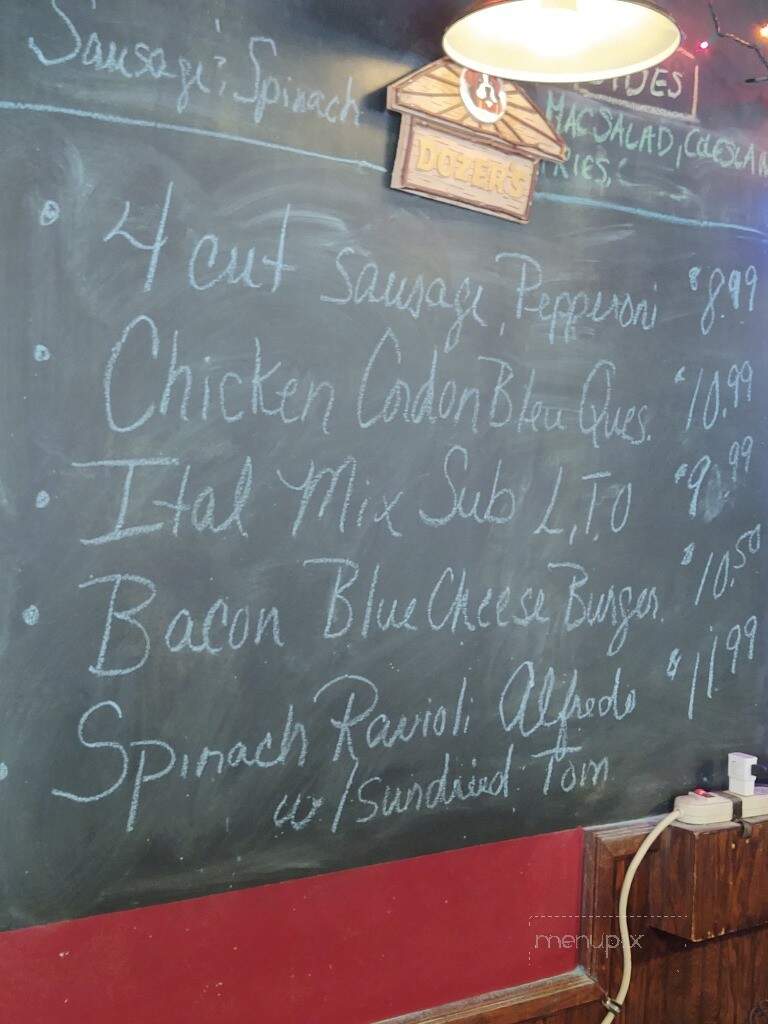 Sausage, Spinach
SIDES
MAC SALAD, COLESLAW
FRIES,
DOZER'S
• 4 cut Sausage, Pepperoni $8.99
• Chicken Cordon Bleu Ques. $10.99
• Ital Mix Sub L,T.O $9.99
• Bacon Blue Cheese Burger $10.50
• Spinach Ravioli Alfredo $11.99
w/sundried Tom
menupix